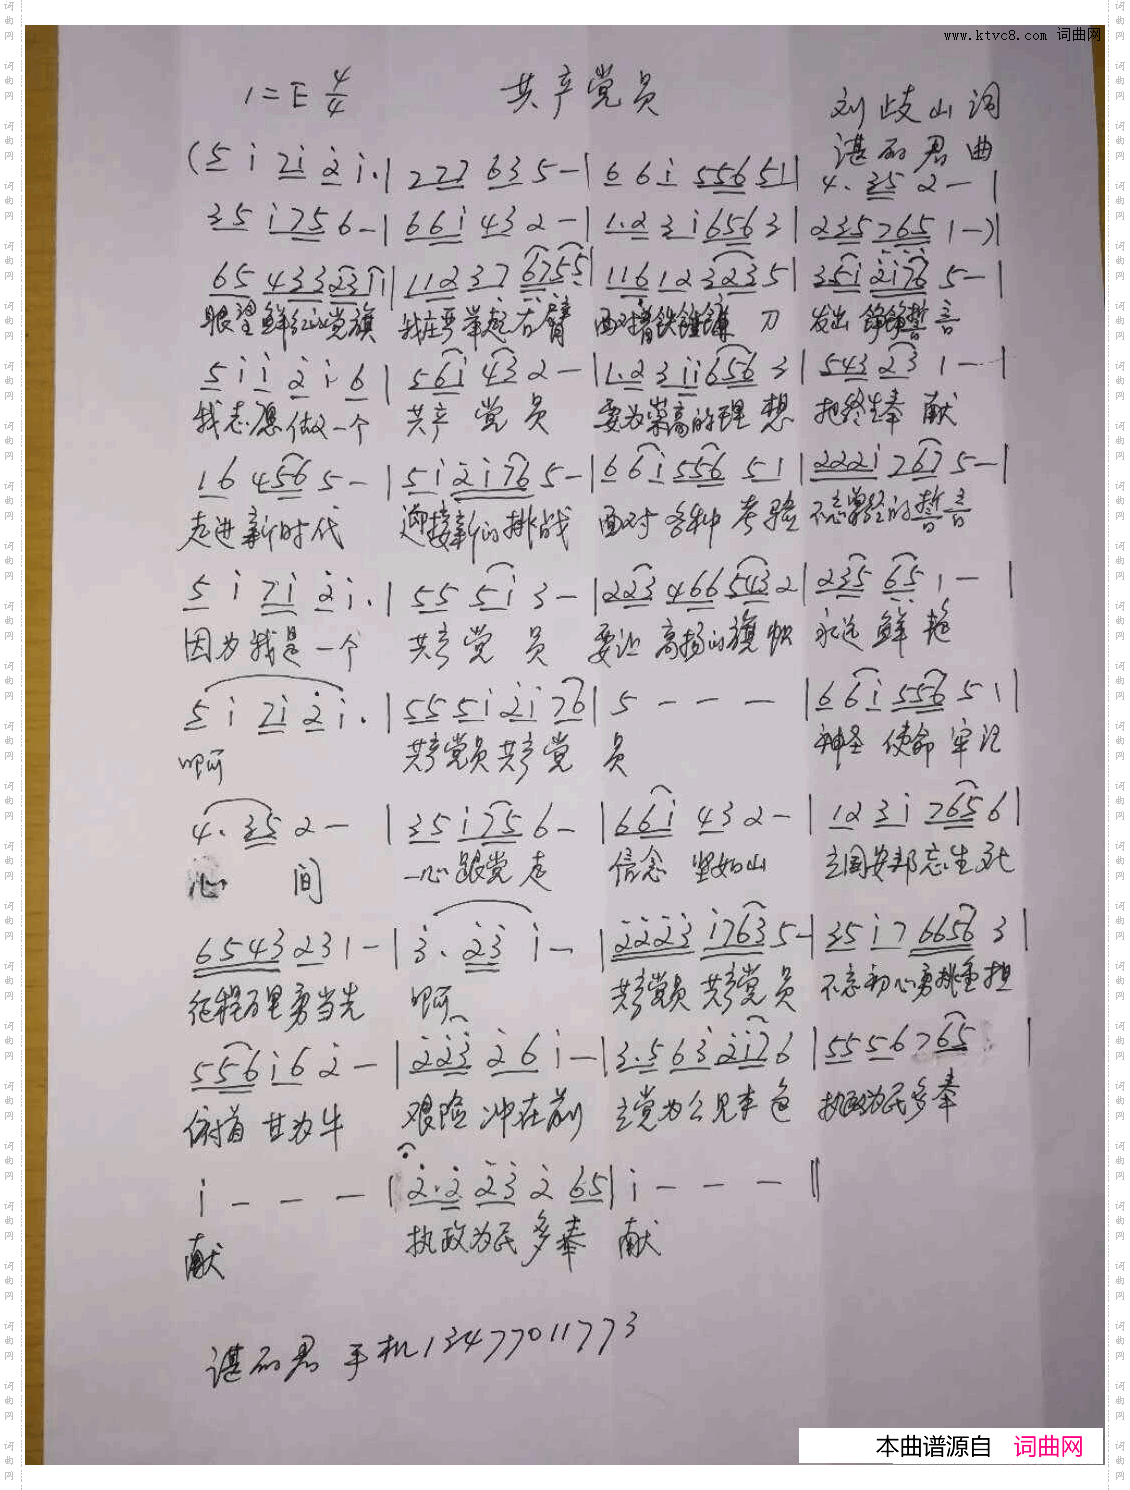 www.ktvc8.com 词曲网
1=E 4/4 共产党员 刘歧山词
谌丽君曲
(5 i 7i 2 i. | 2 27 63 5 - | 6 6 i 556 51 | 4. 35 2 - |
35 i756 - | 66i 43 2 - | 1.2 3i656 3 | 235 765 1 - )|
65 433 231 1 | 112 37 6755 | 116 12 323 5 | 35i 2i76 5 - |
眼望鲜红的党旗 我庄严举起右臂 面对着铁锤镰刀 发出铮铮誓言
5 i i 2 i. 6 | 56i 43 2 - | 1.2 3ii656 3 | 543 23 1 - - |
我志愿做一个 共产党员 要为崇高的理想 把终生奉献
16 456 5 - | 5i 2i76 5 - | 6 6i 556 51 | 222i 767 5 - |
走进新时代 迎接新的挑战 面对各种考验 不忘曾经的誓言
5 i 7i 2 i. | 55 5i 3 - | 223 466 543 2 | 235 65 1 - |
因为我是一个 共产党员 要让高扬的旗帜 永远鲜艳
5 i 7i 2 i. | 55 5i 2i 76 | 5 - - - | 6 6i 556 51 |
啊 共产党员共产党员 神圣使命牢记
4. 35 2 - | 35 i75 6 - | 66i 43 2 - | 12 3i 765 6 |
心间 一心跟党走 信念坚如山 立国安邦忘生死
6543 23 1 - | 3. 23 i - | 2223 i763 5 - | 35 i7 6656 3 |
征程万里勇当先 啊 共产党员共产党员 不忘初心勇挑重担
556 i6 2 - | 223 26 i - | 3.5 63 2i7 6 | 55 56 7 65 |
俯首甘为牛 艰险冲在前 立党为公见本色 执政为民多奉
i - - - | 2.2 23 2 65 | i - - - ||
献 执政为民多奉献
谌丽君 手机13477011773
本曲谱源自 词曲网